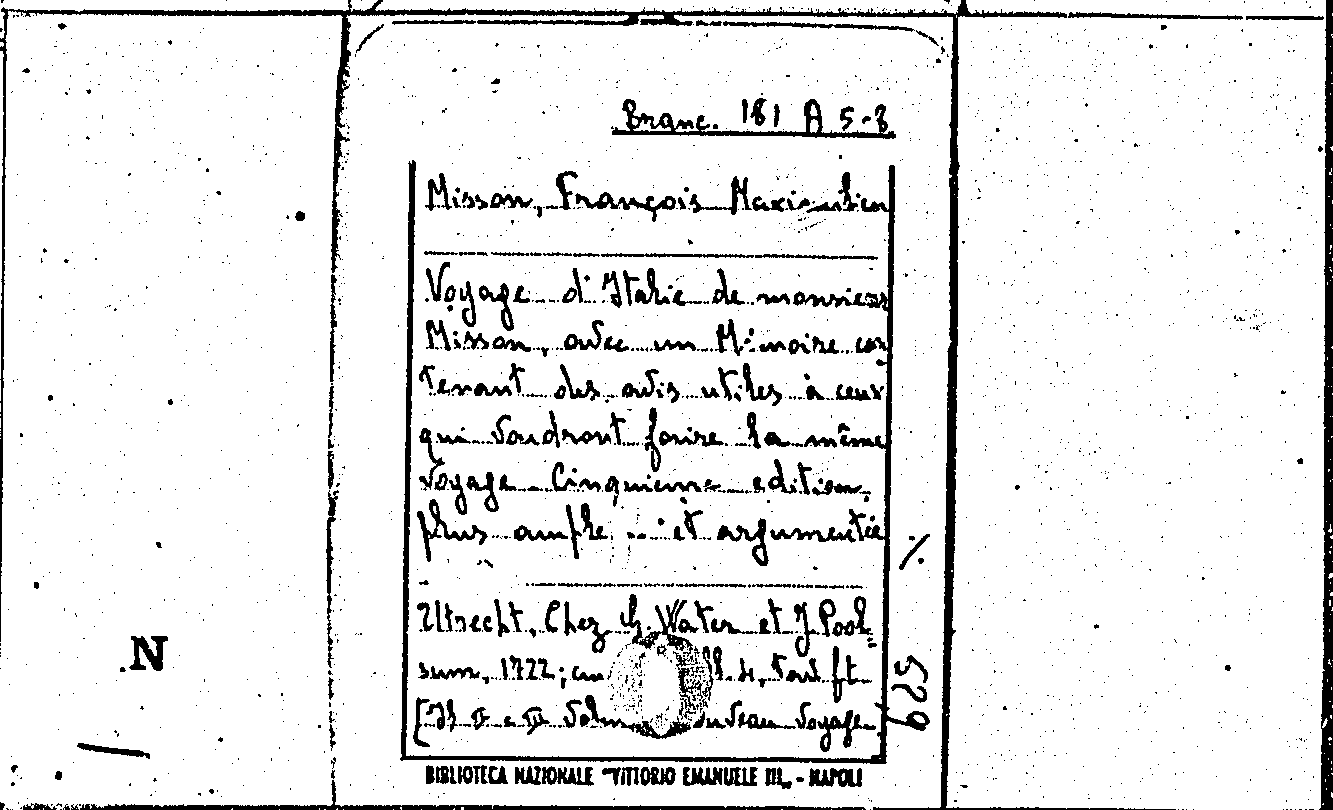 Branc. 181 A 5-8
Misson, François Maximilien
Voyage d'Italie de monsieur
Misson, avec un Mémoire con
tenant des avis utiles à ceux
qui voudront faire la même
voyage. Cinquieme edition,
plus ample ... et argumentée
Utrecht, Chez G. Water et J. Pool
sum, 1722; ll. 4, ft.
[Il II e III nouveau voyage
N
%
529
BIBLIOTECA NAZIONALE "VITTORIO EMANUELE III„ - NAPOLI